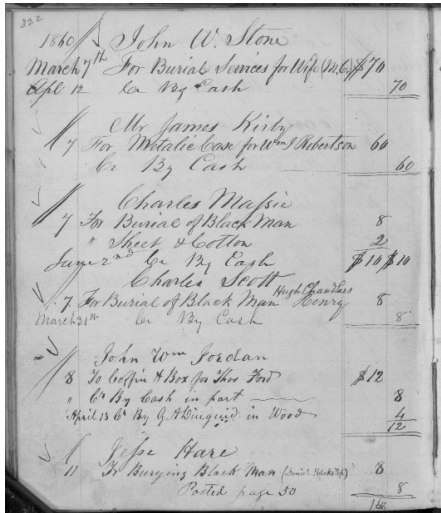 322
1860 John W. Stone
March 7th For Burial Services for Wife (M.C.) $70
Apl 12 Cr By Cash 70
Mr James Kirby
7 For Metalic Case for Wm J Robertson 60
Cr By Cash 60
Charles Massie
7 For Burial of Black Man 8
" Sheet & Cotton 2
June 2nd Cr By Cash $10 $10
Charles Scott
7 For Burial of Black Man Hugh Chandlers Henry 8
March 31st Cr By Cash 8
John Wm Jordan
8 To Coffin & Box for Thos Ford $12
" Cr By Cash in part 8
April 13 Cr By G A Diuguid in Wood 4
12
Jesse Hare
11 For Burying Black Man 8
Posted page 50 8